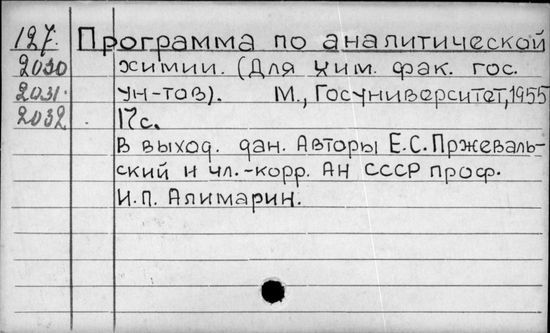 127. Программа по аналитической
2030 химии. (Для хим. фак. гос.
2031. ун-тов). М., Госуниверситет, 1955
2032 17с.
В выход. дан. Авторы Е.С. Пржеваль-
ский и чл.-корр. АН СССР проф.
И.П. Алимарин.